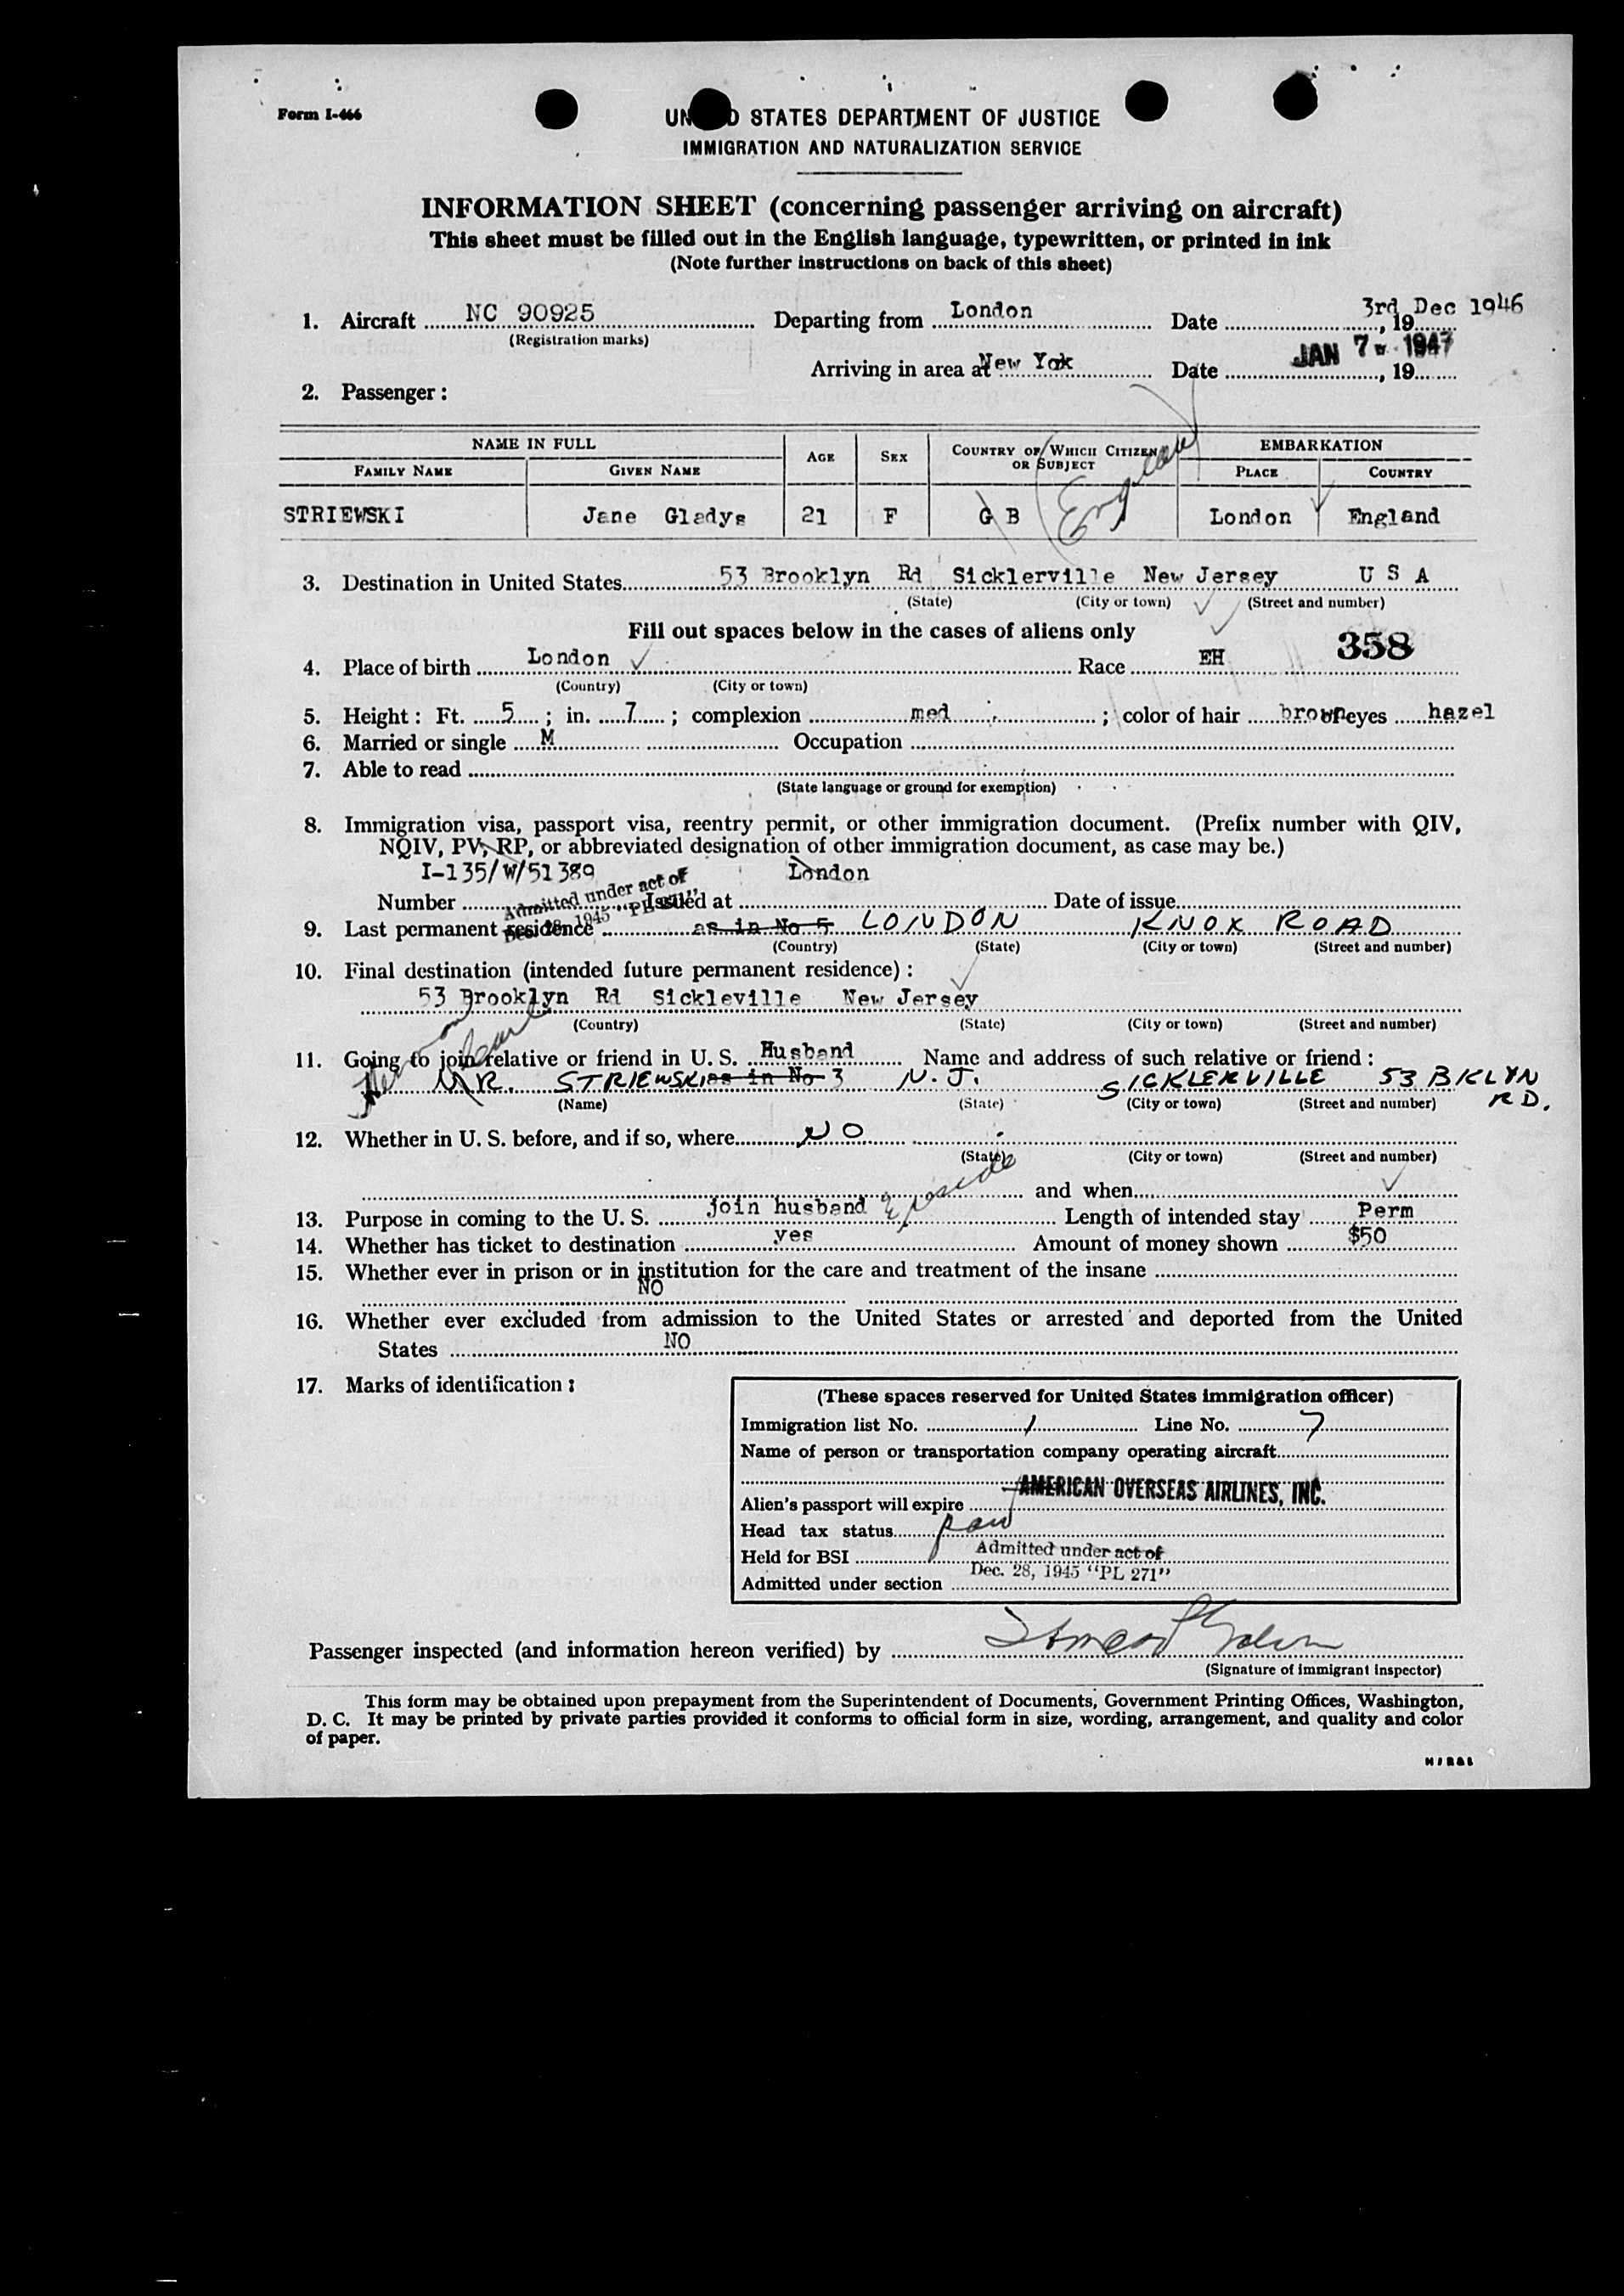 Form I-466
UNITED STATES DEPARTMENT OF JUSTICE
IMMIGRATION AND NATURALIZATION SERVICE
INFORMATION SHEET (concerning passenger arriving on aircraft)
This sheet must be filled out in the English language, typewritten, or printed in ink
(Note further instructions on back of this sheet)
1. Aircraft NC 90925 Departing from London Date 3rd Dec 1946, 19
(Registration marks)
Arriving in area at New Yok Date JAN 7 1947, 19
2. Passenger:
NAME IN FULL AGE SEX COUNTRY OF WHICH CITIZEN OR SUBJECT EMBARKATION
FAMILY NAME GIVEN NAME PLACE COUNTRY
STRIEWSKI Jane Gladys 21 F G B London England
3. Destination in United States 53 Brooklyn Rd Sicklerville New Jersey U S A
(State) (City or town) (Street and number)
Fill out spaces below in the cases of aliens only
358
4. Place of birth London Race EH
(Country) (City or town)
5. Height: Ft. 5; in. 7; complexion med; color of hair brown eyes hazel
6. Married or single M Occupation
7. Able to read
(State language or ground for exemption)
8. Immigration visa, passport visa, reentry permit, or other immigration document. (Prefix number with QIV,
NQIV, PV, RP, or abbreviated designation of other immigration document, as case may be.)
I-135/W/51389 London
Number Issued at Date of issue
Admitted under act of
Dec. 28, 1945 "PL 271"
9. Last permanent residence as in No 5 LONDON KNOX ROAD
(Country) (State) (City or town) (Street and number)
10. Final destination (intended future permanent residence):
53 Brooklyn Rd Sickleville New Jersey
(Country) (State) (City or town) (Street and number)
11. Going to join relative or friend in U. S. Husband Name and address of such relative or friend:
MR. STRIEWSKI as in No 3 N. J. SICKLERVILLE 53 BKLYN RD.
(Name) (State) (City or town) (Street and number)
12. Whether in U. S. before, and if so, where NO
(State) (City or town) (Street and number)
and when
13. Purpose in coming to the U. S. join husband & reside Length of intended stay Perm
14. Whether has ticket to destination yes Amount of money shown $50
15. Whether ever in prison or in institution for the care and treatment of the insane
NO
16. Whether ever excluded from admission to the United States or arrested and deported from the United
States NO
17. Marks of identification:
(These spaces reserved for United States immigration officer)
Immigration list No. 1 Line No. 7
Name of person or transportation company operating aircraft
AMERICAN OVERSEAS AIRLINES, INC.
Alien's passport will expire
Head tax status
Held for BSI
Admitted under act of
Dec. 28, 1945 "PL 271"
Admitted under section
Passenger inspected (and information hereon verified) by
(Signature of immigrant inspector)
This form may be obtained upon prepayment from the Superintendent of Documents, Government Printing Offices, Washington,
D. C. It may be printed by private parties provided it conforms to official form in size, wording, arrangement, and quality and color
of paper.